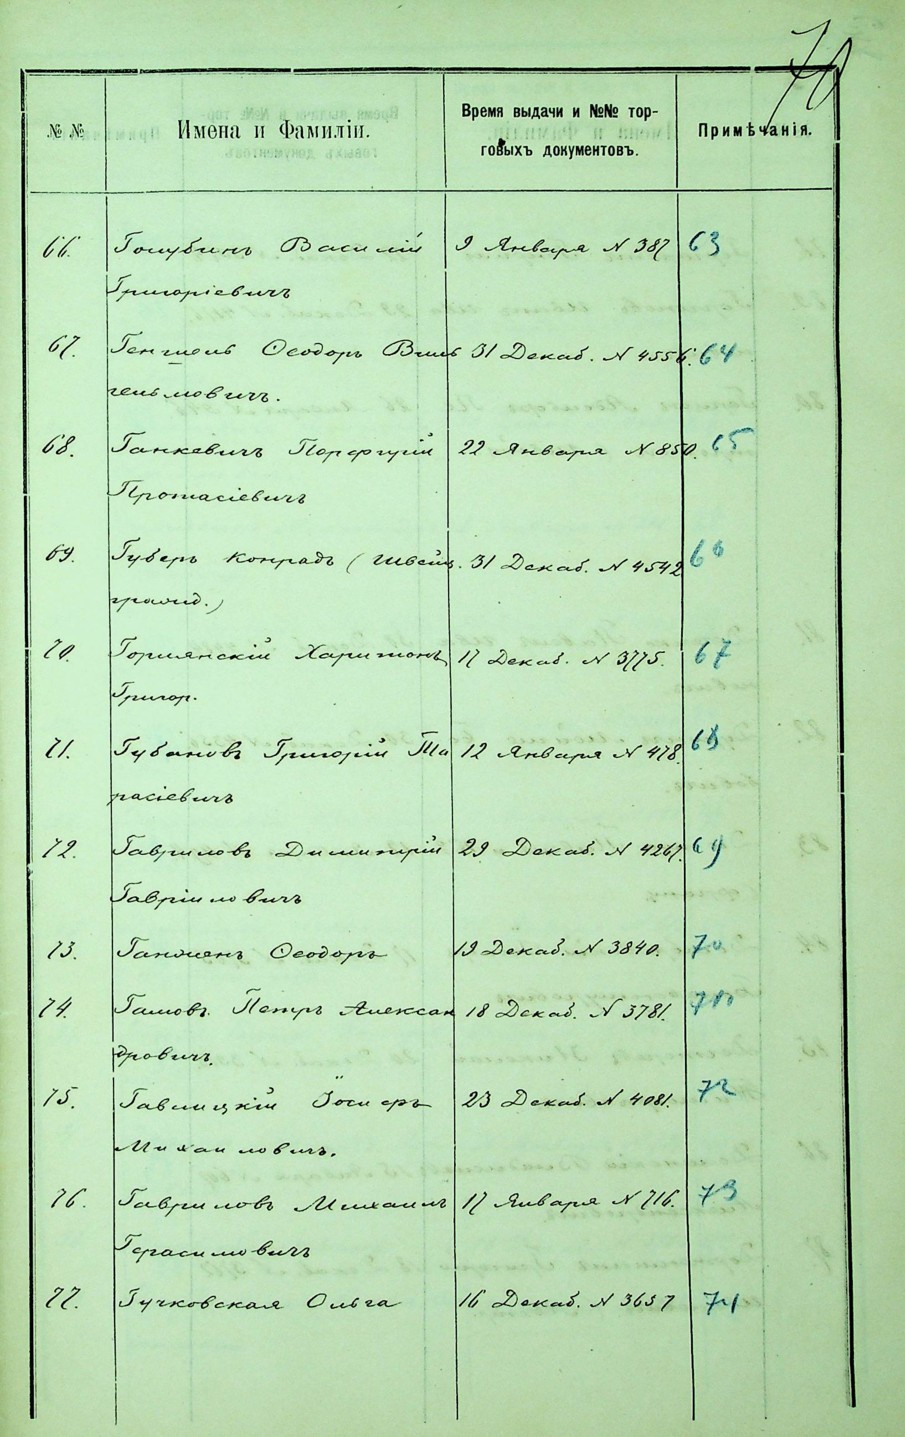 70
№ №
Имена и Фамиліи.
Время выдачи и №№ тор-
говыхъ документовъ.
Примѣчанія.
66. Голубинъ Василій 9 Января N 387 63
Григоріевичъ
67. Геншель Ѳеодоръ Виль 31 Декаб. N 4556. 64
гельмовичъ.
68. Ганкевичъ Порфирій 22 Января N 850. 65
Протасіевичъ
69. Губеръ Конрадъ (Швейц. 31 Декаб. N 4542 66
гражд.)
70. Горлянскій Харитонъ 17 Декаб. N 3775. 67
Григор.
71. Губановъ Григорій Та 12 Января N 478. 68
расіевичъ
72. Гавриловъ Димитрій 29 Декаб. N 4267. 69
Гавріиловичъ
73. Ѳеодоръ 19 Декаб. N 3840. 70
74. Гамовъ Петръ Алексан 18 Декаб. N 3781. 71
дровичъ.
75. Іосифъ 23 Декаб. N 4081. 72
Михаиловичъ.
76. Гавриловъ Михаилъ 17 Января N 716. 73
Герасимовичъ
77. Гучковская Ольга 16 Декаб. N 3657 74